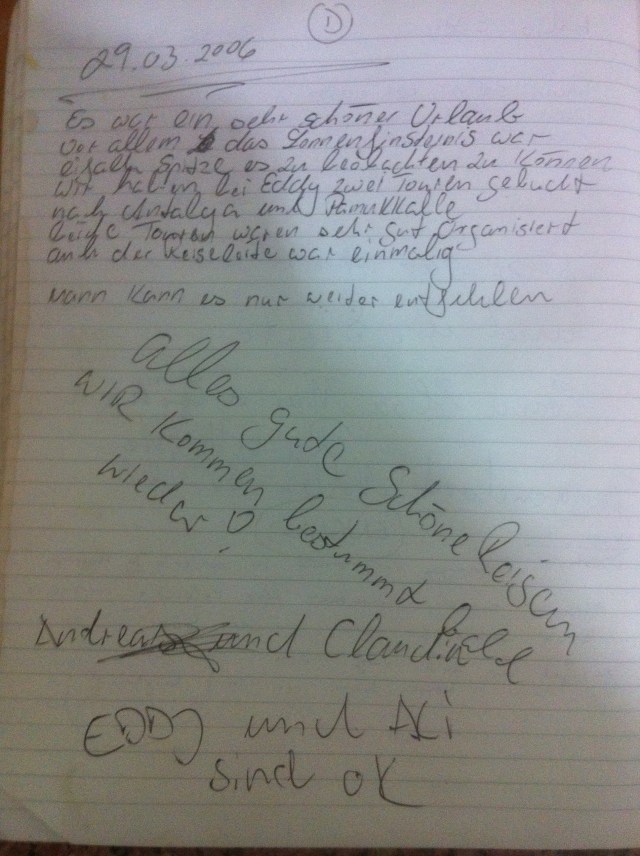 D
29.03.2006
Es war ein sehr schöner Urlaub
vor allem das Sonnenfinsternis war
einfach Spitze es zu beobachten zu können
wir haben bei Eddy zwei Touren gebucht
nach Antalya und Pamukkalle
beide Touren waren sehr gut Organisiert
auch der Reiseleite war einmalig
Mann kann es nur weider entfehlen
Alles gude Schöne Reisen
WIR kommen bestimmd
wieder!
Andreas und Claudia
EDDJ und ALi
sind OK